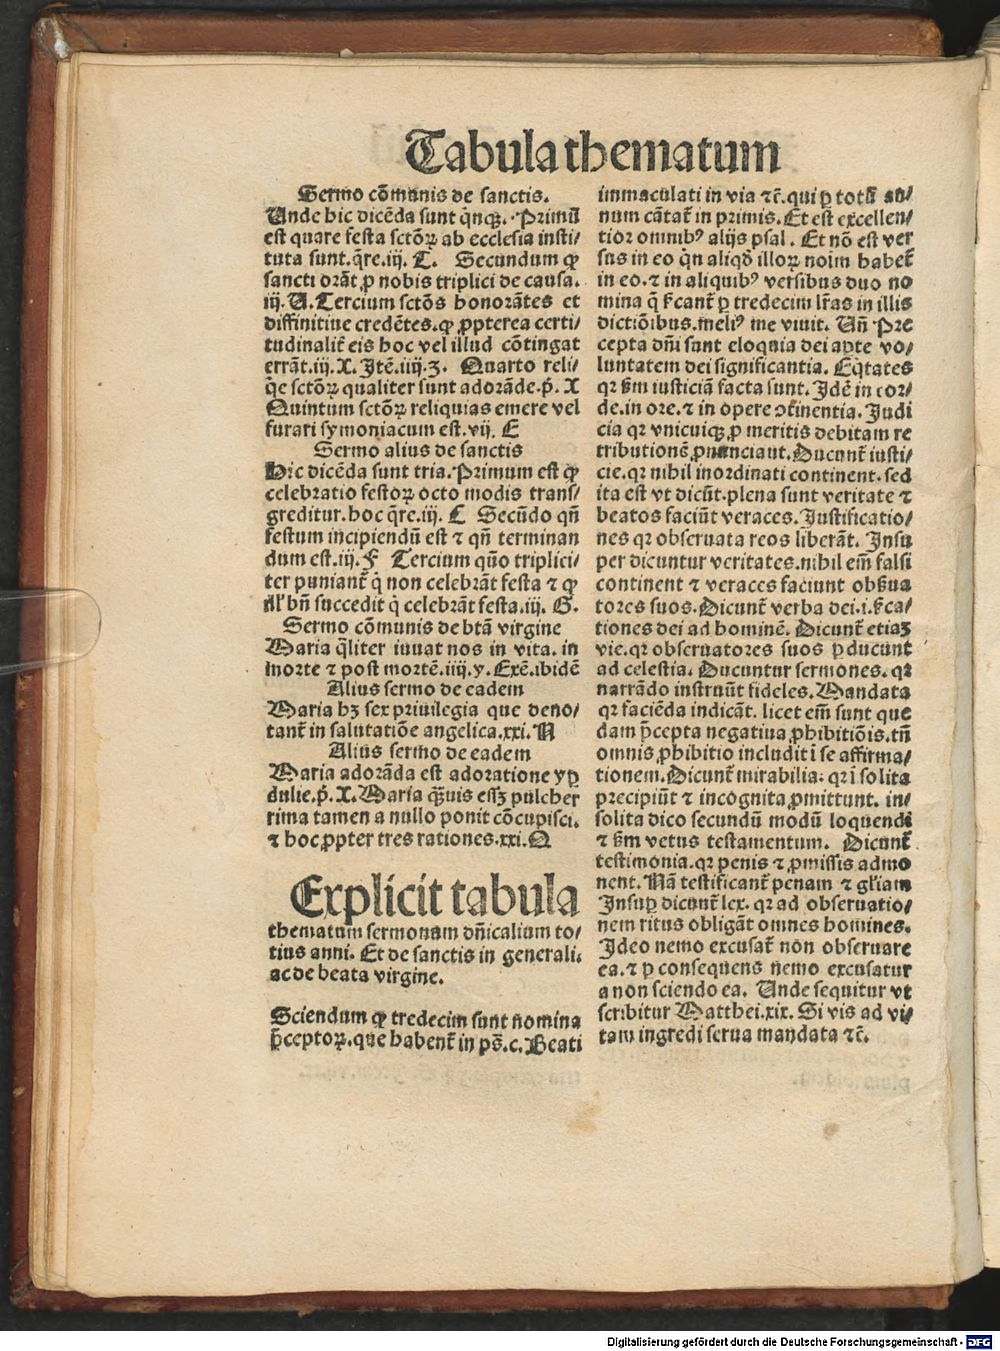 Tabula thematum
Sermo cōmunis de sanctis.
Unde hic dicēda sunt q̄nqꝫ. Primū
est quare festa sctōꝝ ab ecclesia insti/
tuta sunt.q̄re.iij. C. Secundum ꝙ
sancti orāt ꝓ nobis triplici de causa.
iij.A.Tercium sctōs honorātes et
diffinitiue credētes.ꝙ ꝓpterea certi/
tudinalit̄ eis hoc vel illud cōtingat
errāt.iij.X.Itē.iiij.3. Quarto reli/
q̄e sctōꝝ qualiter sunt adorāde.p̄. X
Quintum sctōꝝ reliquias emere vel
furari symoniacum est.vij. E
Sermo alius de sanctis
Hic dicēda sunt tria.Primum est ꝙ
celebratio festoꝝ octo modis trans/
greditur.hoc q̄re.iij. E Secūdo qn̄
festum incipiendū est ⁊ qn̄ terminan
dum est.iij.F Tercium quo triplici/
ter puniant̄ q̇ non celebrāt festa ⁊ ꝙ
bn̄ succedit q̇ celebrāt festa.iij. G.
Sermo cōmunis de btā virgine
Maria q̄liter iuuat nos in vita. in
morte ⁊ post mortē.iiij.y.Exē.ibidē
Alius sermo de eadem
Maria hꝫ sex priuilegia que deno/
tant̄ in salutatiōe angelica.xxi.N
Alius sermo de eadem
Maria adorāda est adoratione yꝑ
dulie.p̄.X.Maria q̄uis essꝫ pulcher
rima tamen a nullo ponit cōcupisci.
⁊ hoc ꝓpter tres rationes.xxi.Q
Explicit tabula
thematum sermonum dn̄icalium to/
tius anni. Et de sanctis in generali.
ac de beata virgine.
Sciendum ꝙ tredecim sunt nomina
p̄ceptoꝝ.que habent̄ in ps̄.c.Beati
immaculati in via ⁊c̄.qui ꝑ totū an/
num cātat̄ in primis.Et est excellen/
tior omnibꝰ alijs psal. Et nō est ver
sus in eo q̇n aliqd̄ illoꝝ noīm habet̄
in eo.⁊ in aliquibꝰ versibus duo no
mina q̄ s̄cant̄ ꝑ tredecim lr̄as in illis
dictiōibus.meliꝰ me viuit. Un̄ Pre
cepta dn̄i sunt eloquia dei apte vo/
luntatem dei significantia. Eq̄tates
qꝛ s̄m iusticiā facta sunt.Idē in cor/
de.in ore.⁊ in opere ↄtinentia.Iudi
cia qꝛ vnicuiqꝫ ꝓ meritis debitam re
tributionē ꝓnunciant.Ducunt̄ iusti/
cie.qꝛ nihil inordinati continent.sed
ita est vt dicūt.plena sunt veritate ⁊
beatos faciūt veraces.Iustificatio/
nes qꝛ obseruata reos liberāt. Insu
per dicuntur veritates.nihil em̄ falsi
continent ⁊ veraces faciunt obs̄ua
tores suos.Dicunt̄ verba dei.i.s̄ca/
tiones dei ad hominē.Dicunt̄ etiaꝫ
vie.qꝛ obseruatores suos ꝑducunt
ad celestia. Ducuntur sermones. qꝛ
narrādo instruūt fideles.Mandata
qꝛ faciēda indicāt. licet em̄ sunt que
dam p̄cepta negatiua ꝓhibitiōis.tn̄
omnis ꝓhibitio includit ī se affirma/
tionem.Dicunt̄ mirabilia.qꝛ ī solita
precipiūt ⁊ incognita ꝓmittunt. in/
solita dico secundū modū loquendi
⁊ s̄m vetus testamentum. Dicunt̄
testimonia.qꝛ penis ⁊ ꝓmissis admo
nent.Nā testificant̄ penam ⁊ gl̄iam
Insuꝑ dicunt̄ lex. qꝛ ad obseruatio/
nem ritus obligāt omnes homines.
Ideo nemo excusat̄ non obseruare
ea.⁊ ꝑ consequens nemo excusatur
a non sciendo ea. Unde sequitur vt
scribitur Matthei.xix. Si vis ad vi/
tam ingredi serua mandata ⁊c̄.
Digitalisierung gefördert durch die Deutsche Forschungsgemeinschaft - DFG